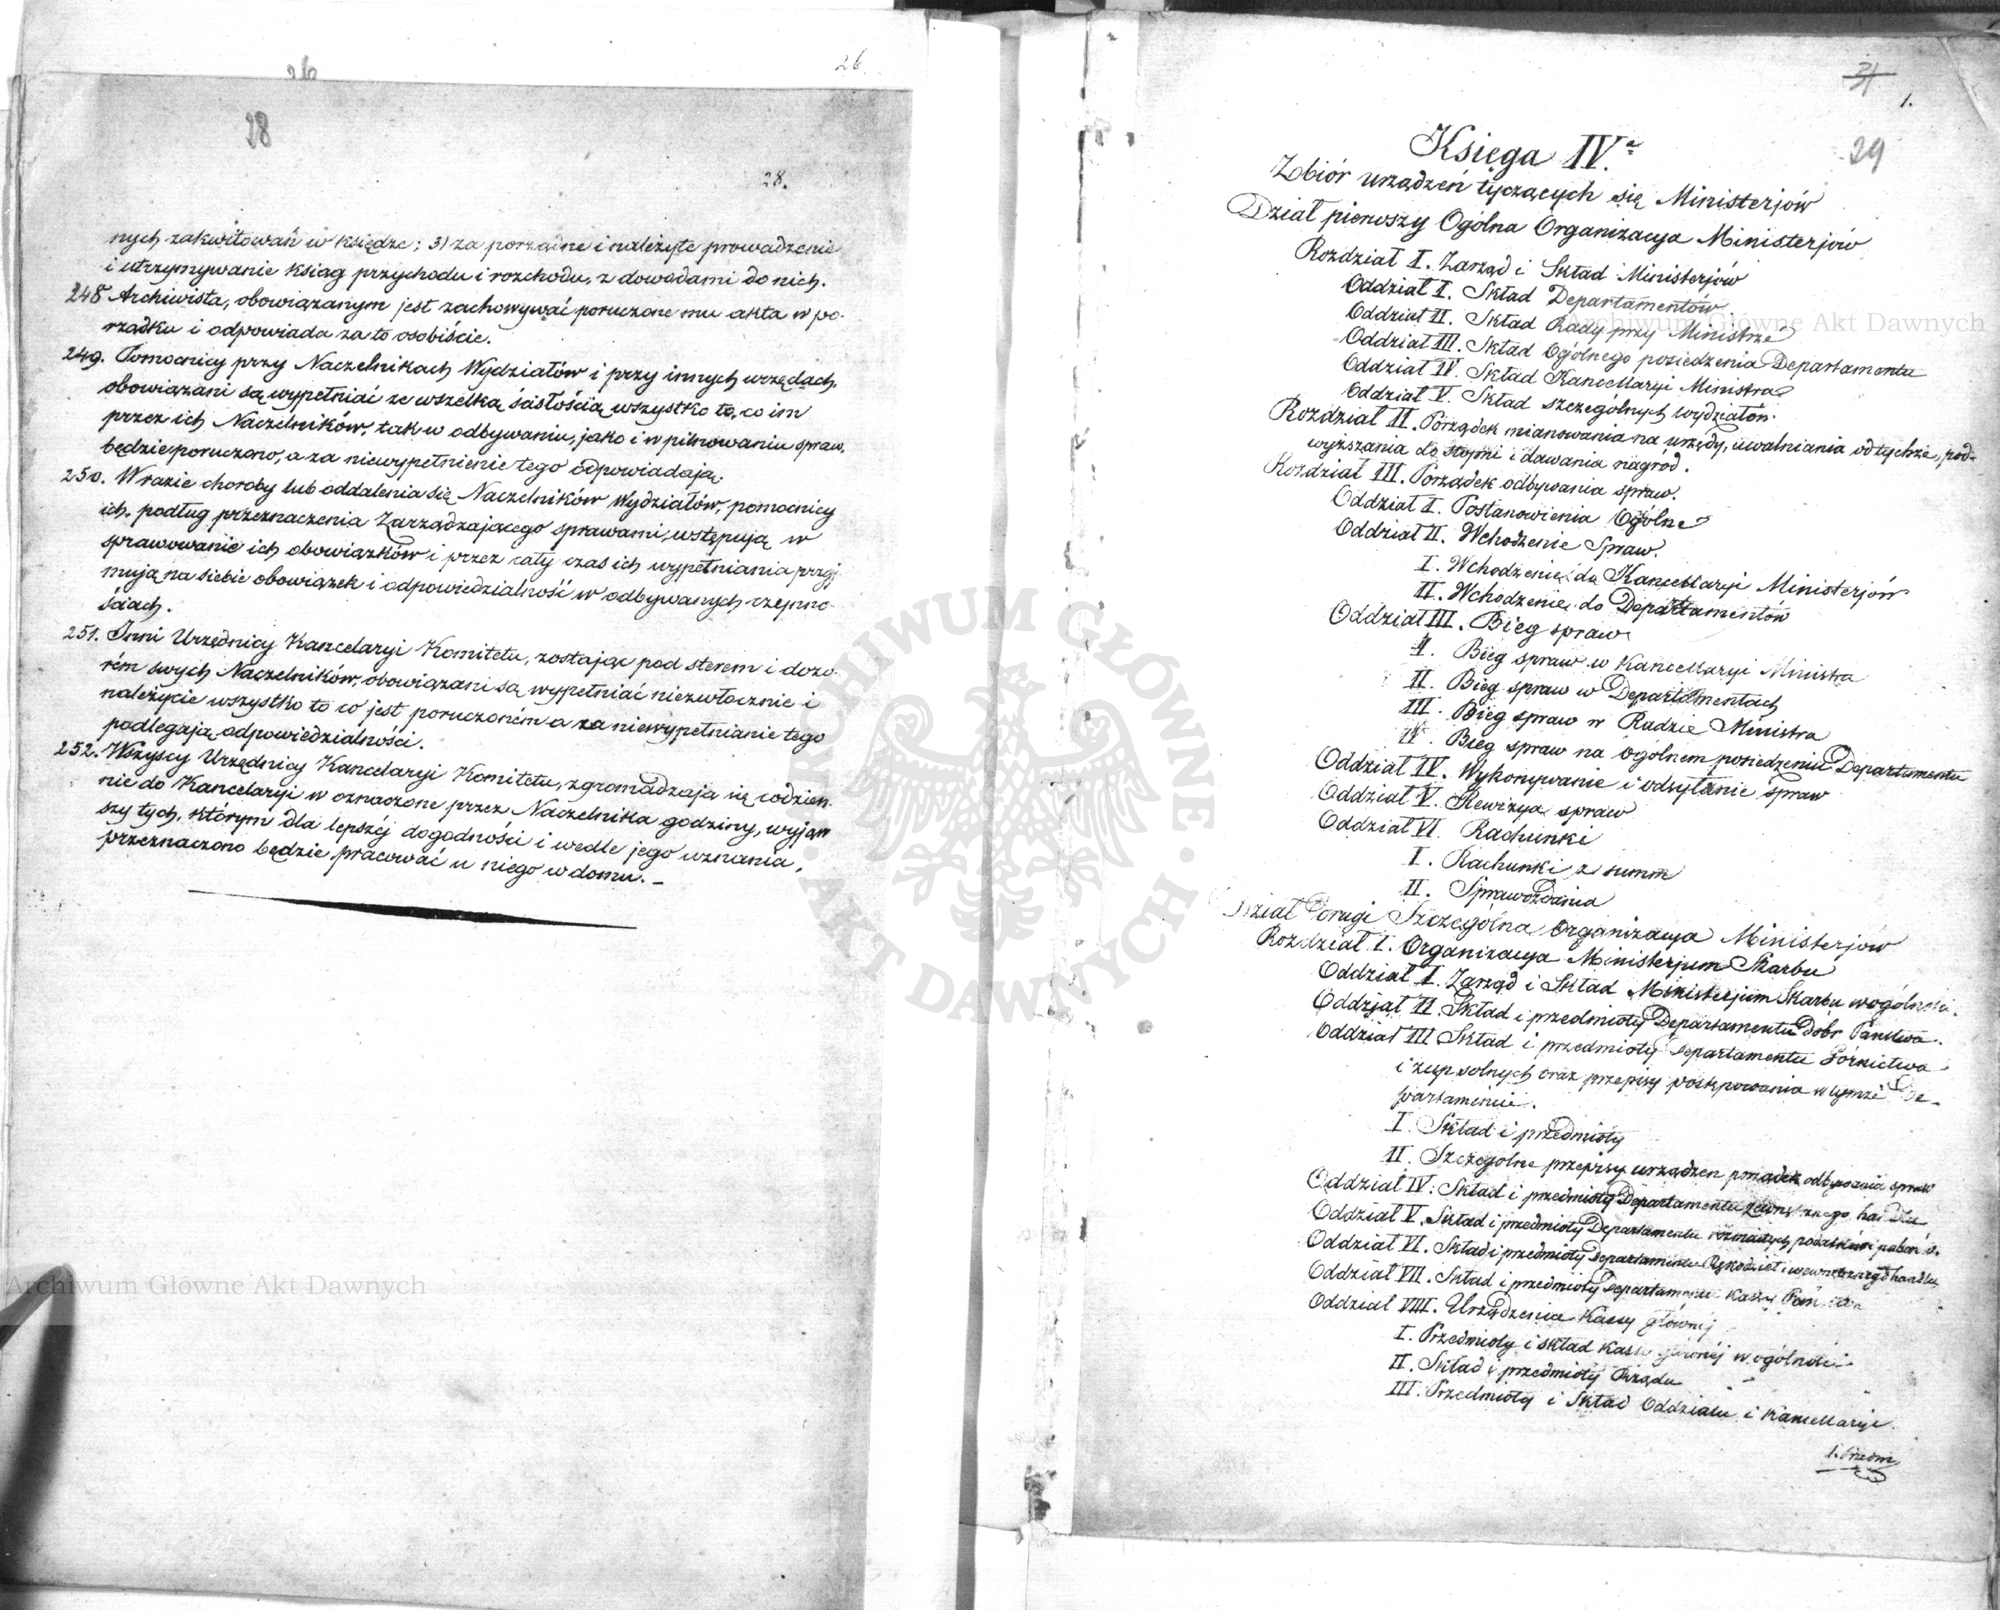 26
26.
28
28.
nych zakwitowań w księdze; 3) za porządne i należyte prowadzenie
i utrzymywanie ksiąg przychodu i rozchodu, z dowodami do nich.
248 Archiwista, obowiązanym jest zachowywać poruczone mu akta w po-
rządku i odpowiada za to osobiście.
249. Pomocnicy przy Naczelnikach Wydziałów i przy innych urzędach,
obowiązani są wypełniać ze wszelką ścisłością wszystko to, co im
przez ich Naczelników, tak w odbywaniu, jako i w pilnowaniu spraw,
będzie poruczono, a za niewypełnienie tego odpowiadają.
250. W razie choroby lub oddalenia się Naczelników Wydziałów, pomocnicy
ich, podług przeznaczenia Zarządzającego sprawami, wstępują w
sprawowanie ich obowiązków i przez cały czas ich wypełniania przyj
mują na siebie obowiązek i odpowiedzialność w odbywanych czynno-
ściach.
251. Inni Urzędnicy Kancelaryi Komitetu, zostając pod sterem i dozo-
rém swych Naczelników, obowiązani są wypełniać niezwłocznie i
należycie wszystko to co jest poruczoném a za niewypełnianie tego
podlegają odpowiedzialności.
252. Wszyscy Urzędnicy Kancelaryi Komitetu, zgromadzają się codzien-
nie do Kancelaryi w oznaczone przez Naczelnika godziny, wyjąw
szy tych, którym dla lepszéj dogodności i wedle jego uznania,
przeznaczono będzie pracować u niego w domu.
31
1.
29
Księga IVa
Zbiór urządzeń tyczących się Ministerjów
Dział pierwszy Ogólna Organizacya Ministerjów
Rozdział I. Zarząd i Skład Ministerjów
Oddział I. Skład Departamentów
Oddział II. Skład Rady przy Ministrze
Oddział III. Skład Ogólnego posiedzenia Departamentu
Oddział IV. Skład Kancellaryi Ministra
Oddział V. Skład szczególnych wydziałów.
Rozdział II. Porządek mianowania na urzędy, uwalniania od tychże, pod-
wyższania do stopni i dawania nagród.
Rozdział III. Porządek odbywania spraw.
Oddział I. Postanowienia Ogólne
Oddział II. Wchodzenie Spraw.
I. Wchodzenie do Kancellaryi Ministerjów
II. Wchodzenie do Departamentów
Oddział III. Bieg spraw
I. Bieg spraw w Kancellaryi Ministra
II. Bieg spraw w Departamentach
III. Bieg spraw w Radzie Ministra
IV. Bieg spraw na ogólnem posiedzeniu Departamentu
Oddział IV. Wykonywanie i odsyłanie spraw
Oddział V. Rewizya spraw
Oddział VI. Rachunki
I. Rachunki z summ
II. Sprawozdania
Dział Drugi Szczególna Organizacya Ministerjów
Rozdział I. Organizacya Ministerjum Skarbu
Oddział I. Zarząd i Skład Ministerjum Skarbu w ogólności.
Oddział II. Skład i przedmioty Departamentu Dobr Państwa.
Oddział III Skład i przedmioty Departamentu Górnictwa
i żup solnych oraz przepisy postępowania w tymże De-
partamencie.
I. Skład i przedmioty
II. Szczególne przepisy urządzen porządek odbywania spraw
Oddział IV. Skład i przedmioty Departamentu Zewnętrznego handlu
Oddział V. Skład i przedmioty Departamentu rozmaitych podatków i poborów.
Oddział VI. Skład i przedmioty Departamentu Rękodzieł i wewnętrznego handlu
Oddział VII. Skład i przedmioty Departamentu Kassy Państwa
Oddział VIII. Urządzenie Kassy głównej
I. Przedmioty i skład Kassy głównéj w ogólności
II. Skład i przedmioty Rządu
III. Przedmioty i Skład Oddziału i Kancellaryi.
1. Przedm
Archiwum Główne Akt Dawnych
ARCHIWUM GŁÓWNE AKT DAWNYCH
Archiwum Główne Akt Dawnych